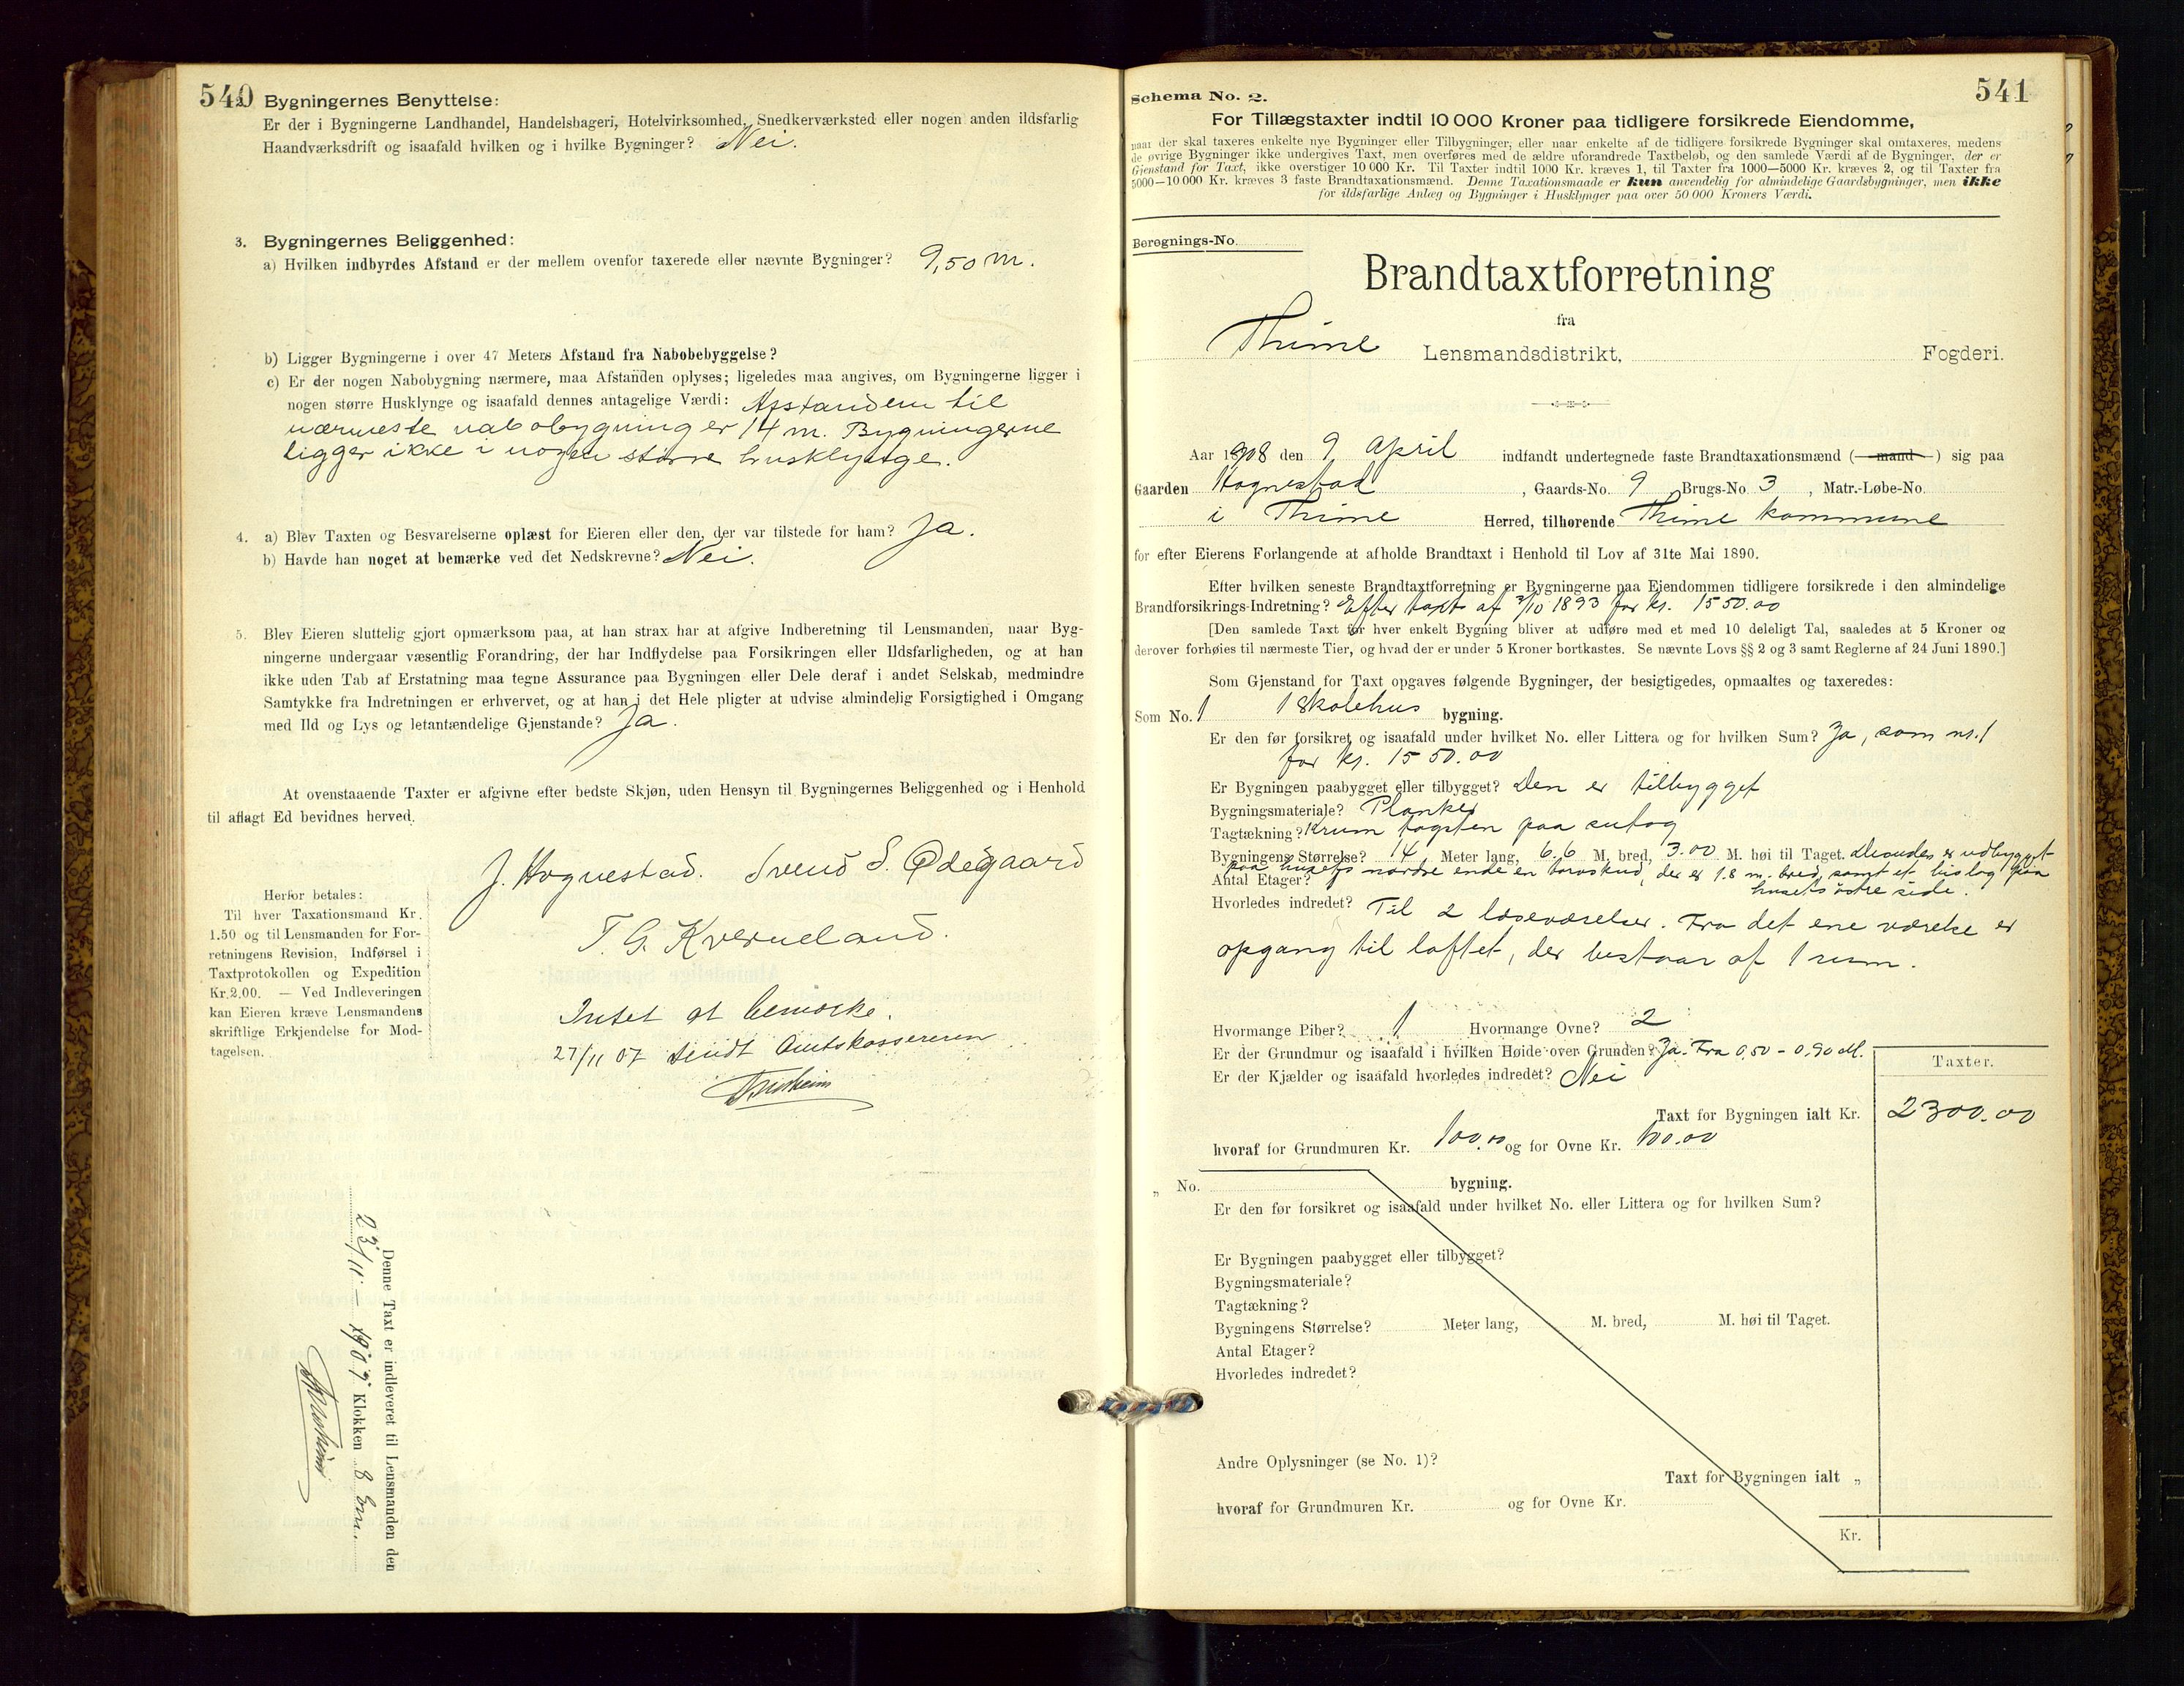 540
2. Bygningernes Benyttelse:
Er der i Bygningerne Landhandel, Handelsbageri, Hotelvirksomhed, Snedkerværksted eller nogen anden ildsfarlig
Haandværksdrift og isaafald hvilken og i hvilke Bygninger? Nei.
3. Bygningernes Beliggenhed:
a) Hvilken indbyrdes Afstand er der mellem ovenfor taxerede eller nævnte Bygninger? 9,50 m.
b) Ligger Bygningerne i over 47 Meters Afstand fra Nabobebyggelse?
c) Er der nogen Nabobygning nærmere, maa Afstanden oplyses; ligeledes maa angives, om Bygningerne ligger i
nogen større Husklynge og isaafald dennes antagelige Værdi: Afstanden til
nærmeste nabobygning er 14 m. Bygningerne
ligger ikke i nogen større husklynge.
4. a) Blev Taxten og Besvarelserne oplæst for Eieren eller den, der var tilstede for ham? Ja.
b) Havde han noget at bemærke ved det Nedskrevne? Nei.
5. Blev Eieren sluttelig gjort opmærksom paa, at han strax har at afgive Indberetning til Lensmanden, naar Byg-
ningerne undergaar væsentlig Forandring, der har Indflydelse paa Forsikringen eller Ildsfarligheden, og at han
ikke uden Tab af Erstatning maa tegne Assurance paa Bygningen eller Dele deraf i andet Selskab, medmindre
Samtykke fra Indretningen er erhvervet, og at han i det Hele pligter at udvise almindelig Forsigtighed i Omgang
med Ild og Lys og letantændelige Gjenstande? Ja.
At ovenstaaende Taxter er afgivne efter bedste Skjøn, uden Hensyn til Bygningernes Beliggenhed og i Henhold
til aflagt Ed bevidnes herved.
J. Hognestad. Svend S. Ødegaard
T. G. Kverneland.
Herfor betales:
Til hver Taxationsmand Kr.
1.50 og til Lensmanden for For-
retningens Revision, Indførsel i
Taxtprotokollen og Expedition
Kr. 2.00. — Ved Indleveringen
kan Eieren kræve Lensmandens
skriftlige Erkjendelse for Mod-
tagelsen.
Intet at bemærke.
27/11 07 sendt Amtskassereren
Denne Taxt er indleveret til Lensmanden den
23/11 – 1907 Klokken 8 Em.
541
Schema No. 2.
For Tillægstaxter indtil 10 000 Kroner paa tidligere forsikrede Eiendomme,
naar der skal taxeres enkelte nye Bygninger eller Tilbygninger, eller naar enkelte af de tidligere forsikrede Bygninger skal omtaxeres, medens
de øvrige Bygninger ikke undergives Taxt, men overføres med de ældre uforandrede Taxtbeløb, og den samlede Værdi af de Bygninger, der er
Gjenstand for Taxt, ikke overstiger 10 000 Kr. Til Taxter indtil 1000 Kr. kræves 1, til Taxter fra 1000—5000 Kr. kræves 2, og til Taxter fra
5000—10 000 Kr. kræves 3 faste Brandtaxationsmænd. Denne Taxationsmaade er kun anvendelig for almindelige Gaardsbygninger, men ikke
for ildsfarlige Anlæg og Bygninger i Husklynger paa over 50 000 Kroners Værdi.
Beregnings-No.
Brandtaxtforretning
fra
Thime Lensmandsdistrikt, Fogderi.
Aar 1908 den 9 April indfandt undertegnede faste Brandtaxationsmænd (mand) sig paa
Gaarden Hognestad, Gaards-No. 9 Brugs-No. 3, Matr.-Løbe-No.
i Thime Herred, tilhørende Thime kommune
for efter Eierens Forlangende at afholde Brandtaxt i Henhold til Lov af 31te Mai 1890.
Efter hvilken seneste Brandtaxtforretning er Bygningerne paa Eiendommen tidligere forsikrede i den almindelige
Brandforsikrings-Indretning? Efter taxt af 3/10 1893 for kr. 1550.00
[Den samlede Taxt for hver enkelt Bygning bliver at udføre med et med 10 deleligt Tal, saaledes at 5 Kroner og
derover forhøies til nærmeste Tier, og hvad der er under 5 Kroner bortkastes. Se nævnte Lovs §§ 2 og 3 samt Reglerne af 24 Juni 1890.]
Som Gjenstand for Taxt opgaves følgende Bygninger, der besigtigedes, opmaaltes og taxeredes:
Som No. 1 1 Skolehus bygning.
Er den før forsikret og isaafald under hvilket No. eller Littera og for hvilken Sum? Ja, som nr. 1
for kr. 1550.00
Er Bygningen paabygget eller tilbygget? Den er tilbygget
Bygningsmateriale? Planker
Tagtækning? Krum tagsten paa sutag
Bygningens Størrelse? 14 Meter lang, 6.6 M. bred, 3.00 M. høi til Taget. Desuden er udbygget
paa husets nordre ende en torvskud, der er 1.8 m. bred, samt et bislag paa
Antal Etager? husets østre side.
Hvorledes indredet? Til 2 læseværelser. Fra det ene værelse er
opgang til loftet, der bestaar af 1 rum.
Hvormange Piber? 1 Hvormange Ovne? 2
Er der Grundmur og isaafald i hvilken Høide over Grunden? Ja. Fra 0,50 – 0,90 M.
Er der Kjælder og isaafald hvorledes indredet? Nei
Taxter.
Taxt for Bygningen ialt Kr. 2300.00
hvoraf for Grundmuren Kr. 100.00 og for Ovne Kr. 100.00
„ No. bygning.
Er den før forsikret og isaafald under hvilket No. eller Littera og for hvilken Sum?
Er Bygningen paabygget eller tilbygget?
Bygningsmateriale?
Tagtækning?
Bygningens Størrelse? Meter lang, M. bred, M. høi til Taget.
Antal Etager?
Hvorledes indredet?
Andre Oplysninger (se No. 1)?
Taxt for Bygningen ialt „
hvoraf for Grundmuren Kr. og for Ovne Kr.
Kr.